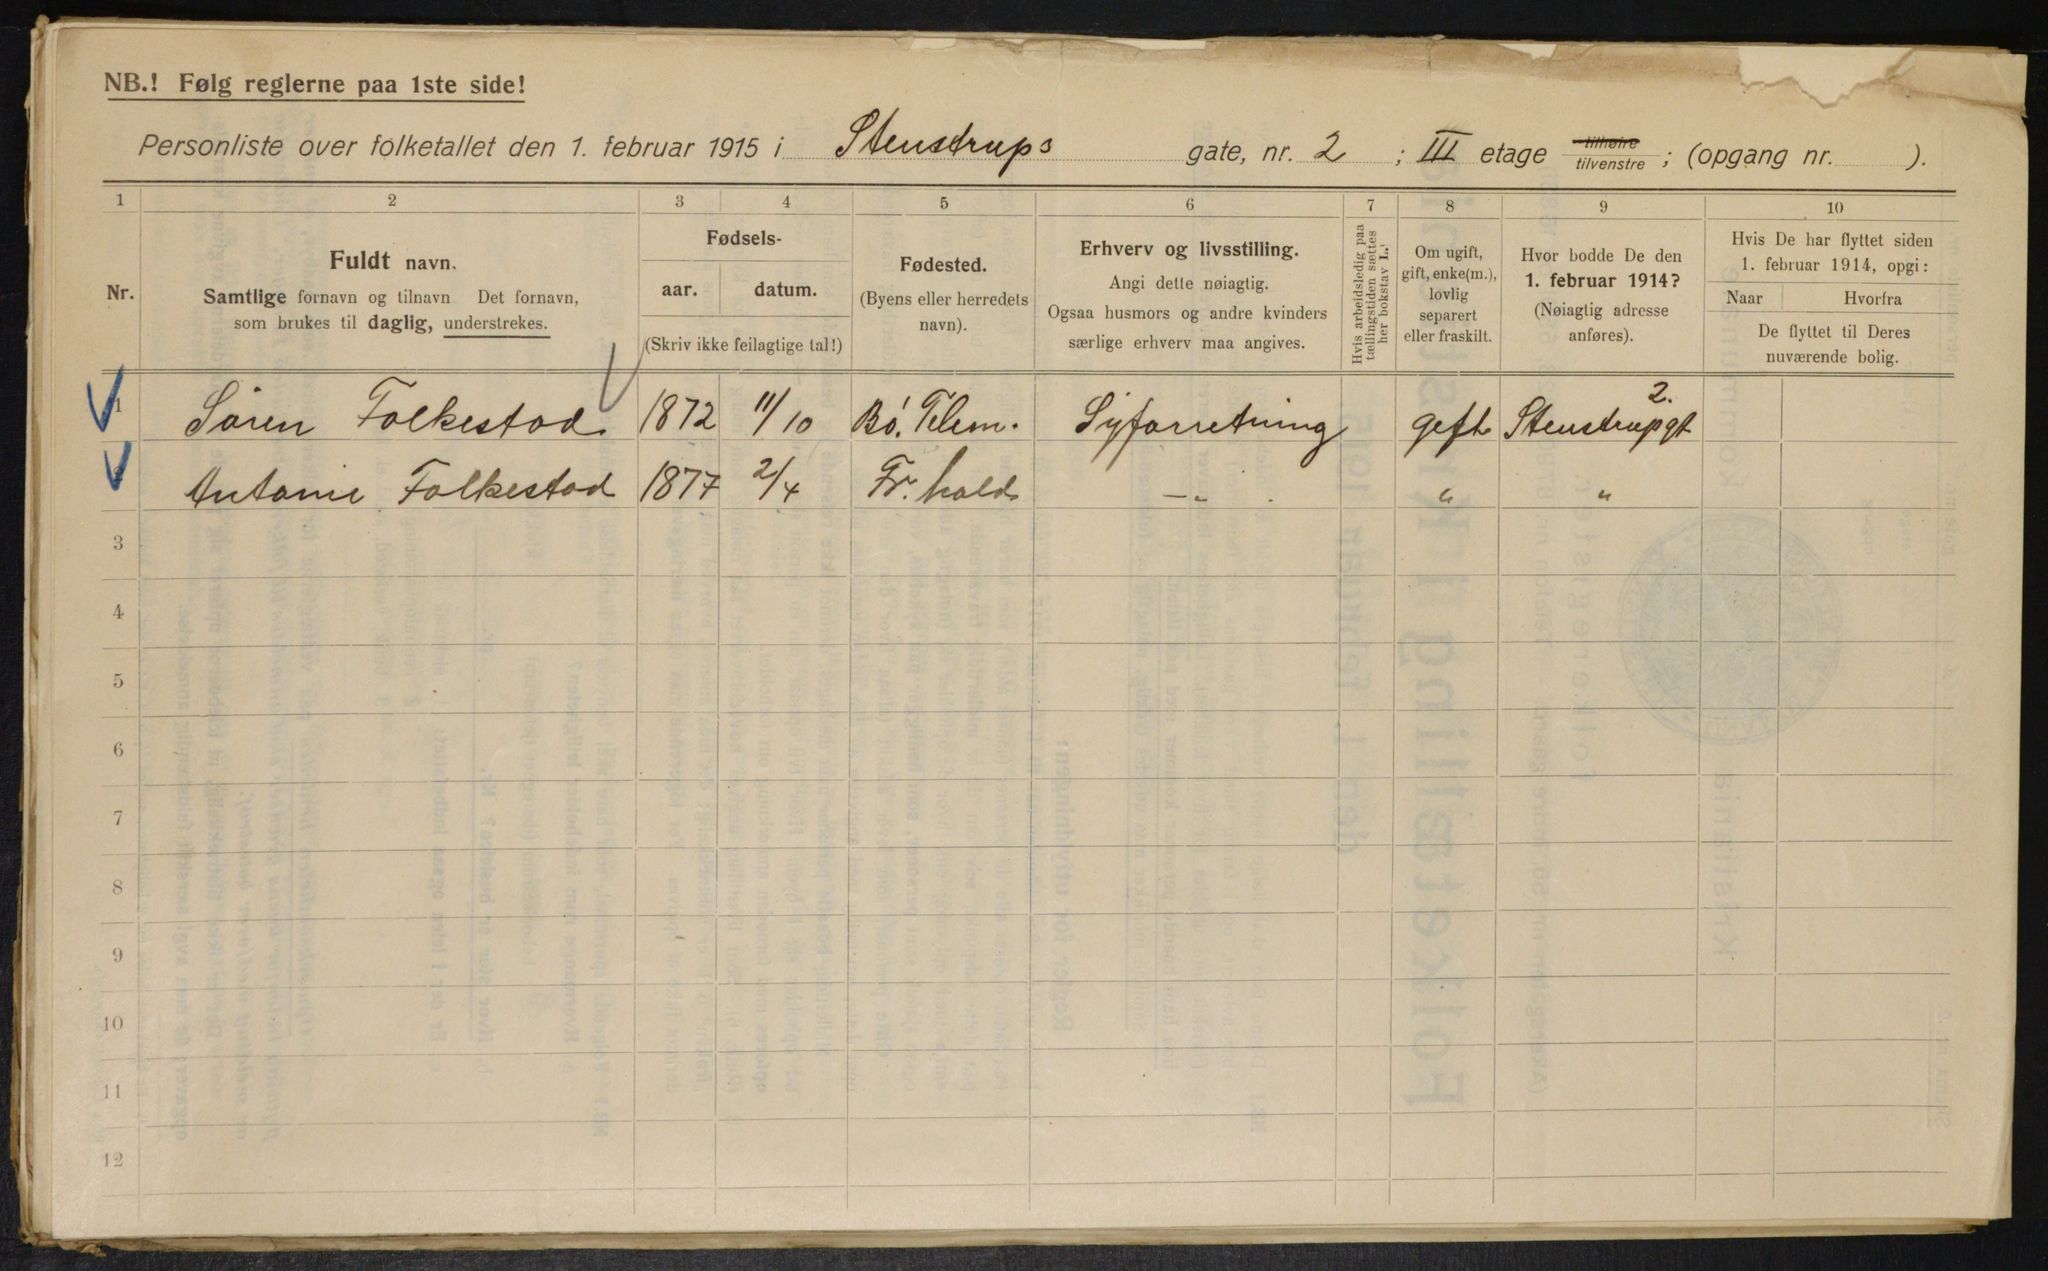 NB.! Følg reglerne paa 1ste side!
Personliste over folketallet den 1. februar 1915 i Stenstrups gate, nr. 2 ; III etage tilhøire tilvenstre ; (opgang nr. ).
1 2 3 4 5 6 7 8 9 10
Nr.
Fuldt navn.
Samtlige fornavn og tilnavn Det fornavn,
som brukes til daglig, understrekes.
Fødsels-
aar. datum.
(Skriv ikke feilagtige tal!)
Fødested.
(Byens eller herredets
navn).
Erhverv og livsstilling.
Angi dette nøiagtig.
Ogsaa husmors og andre kvinders
særlige erhverv maa angives.
Hvis arbeidsledig paa
tællingstiden sættes
her bokstav L.!
Om ugift,
gift, enke(m.),
lovlig
separert
eller fraskilt.
Hvor bodde De den
1. februar 1914?
(Nøiagtig adresse
anføres).
Hvis De har flyttet siden
1. februar 1914, opgi:
Naar Hvorfra
De flyttet til Deres
nuværende bolig.
1 Sören Folkestad 1872 11/10 Bö. Telem. Syforretning gift Stenstrupgt 2.
2 Antonie Folkestad 1877 2/4 Fr. hald —„— „ „
3
4
5
6
7
8
9
10
11
12